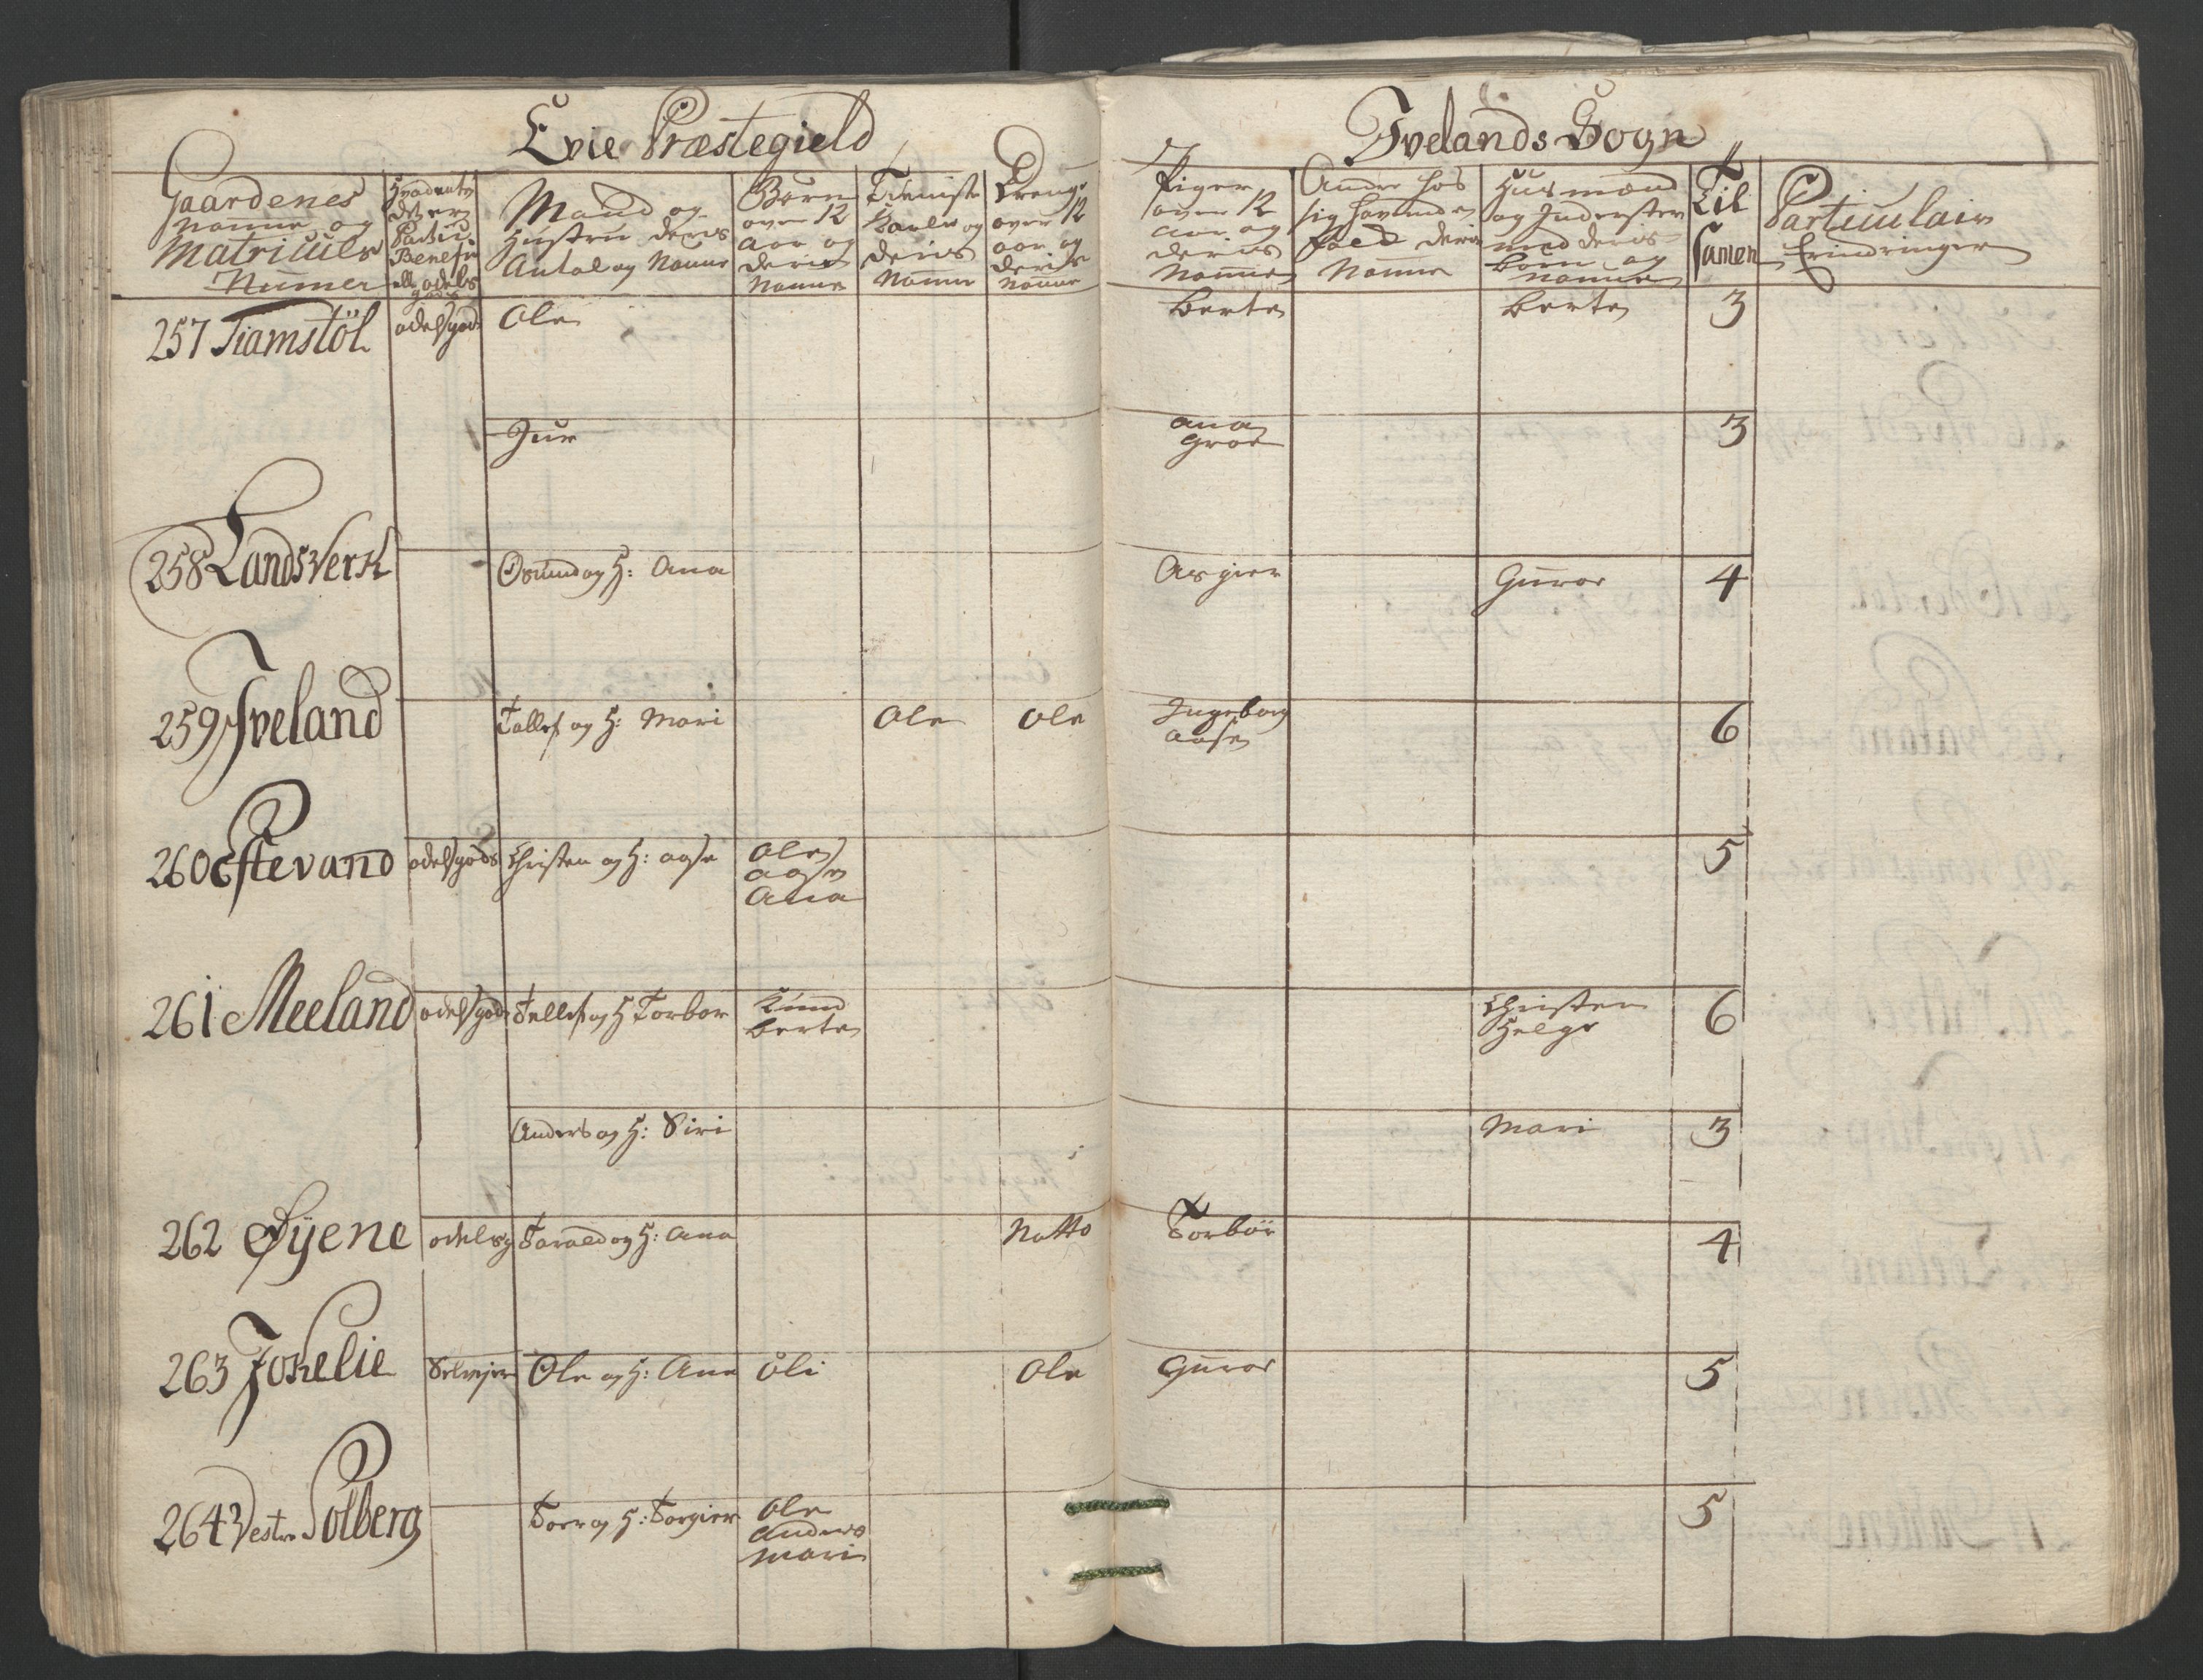 Evie Præstegield
Tvelands Sogn
Gaardenes
Nanne og
Matriculs
Numer
Hvad ent
det er
Particu
Benefic
ell. odels
gods
Mand og
Hustru deris
Antal og Nanne
Børn
over 12
aar og
deris
Nanne
Tieniste
Karle og
deris
Nanne
Drenge
over 12
aar og
deris
Nanne
Piger
over 12
aar og
deris
Nanne
Andre hos
sig havende
foed deris
Nanne
Husmænd
og Inderster
med deris
børn og
Nanne
Til
samen
Particulair
Erindringer
257 Tiamstöl odelsgods Ole Berte Berte 3
Jur Ana 3
Groe
258 Landsverk Osmund og H: Ana Asgier Guroe 4
259 Iveland Tallef og H: Mari Ole Ole Ingeborg 6
Aase
260 Eftevand odelsgods Christen og H: Aase Ole 5
Aase
Ana
261 Meeland odelsgods Tellef og H Torbor Knud Christen 6
Berte Helge
Anders og H: Siri Mari 3
262 Øyene odelsg Tarald og H: Ana Natto Torbör 4
263 Jokelie Selvejer Ole og H: Ane Oli Ole Guroe 5
264 Vestre Solberg Torr og H: Torgier Ole 5
Anders
Mari